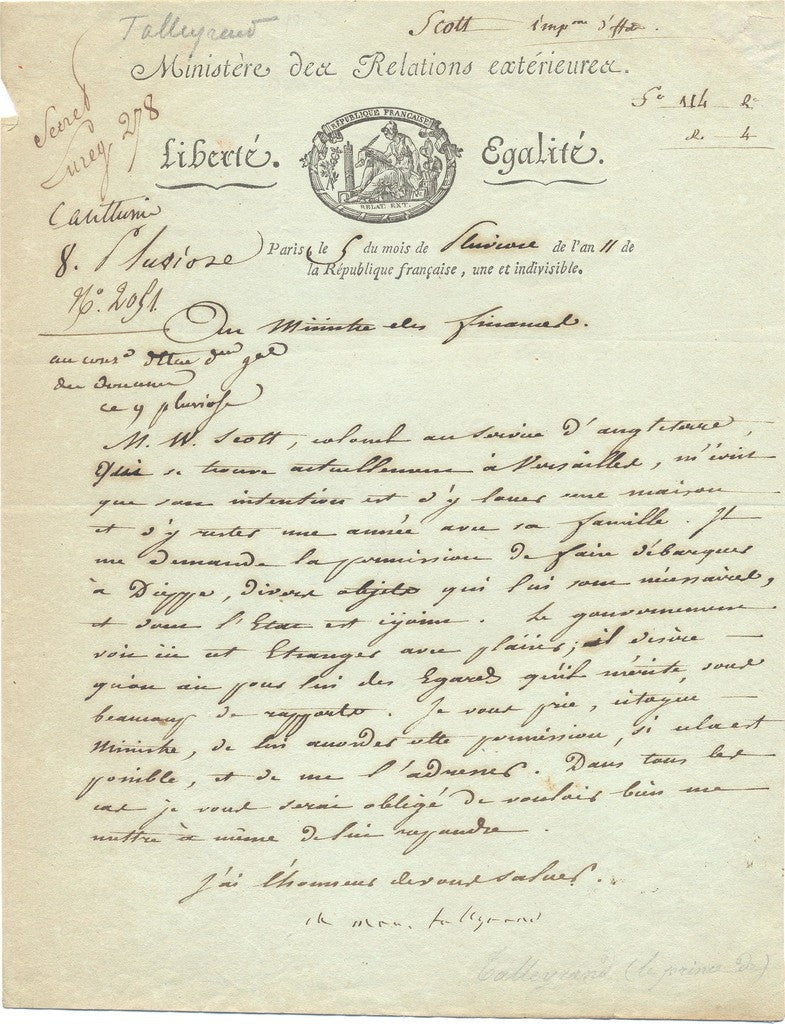 Talleyrand
Scott imp.on d'effs.
Ministère des Relations extérieures.
5e 114
2. 4
Secret
Enreg 278
RÉPUBLIQUE FRANÇAISE
Liberté. Egalité.
RELAT. EXT.
8. Pluviose
No. 2051.
Paris, le 5 du mois de Pluviose de l'an 11 de
la République française, une et indivisible.
Au Ministre des finances.
au cons.er d'Etat d.eur g.al
des douanes
ce 9 pluviose
M. W. Scott, colonel au service d'angleterre,
qui se trouve actuellement à Versailles, m'écrit
que son intention est d'y louer une maison
et d'y rester une année avec sa famille. Il
me demande la permission de faire débarquer
à Dieppe, divers objets qui lui sont nécessaires,
et dont l'Etat est cijoint. Le gouvernement
voit ici cet Etranger avec plaisir; il désire
qu'on ait pour lui des Egards qu'il mérite, sous
beaucoup de rapports. Je vous prie, citoyen
Ministre, de lui accorder cette permission, si cela est
possible, et de me l'adresser. Dans tous les
cas je vous serai obligé de vouloir bien me
mettre à même de lui repondre.
J'ai l'honneur de vous saluer.
ch mau. talleyrand
Talleyrand (le prince de)